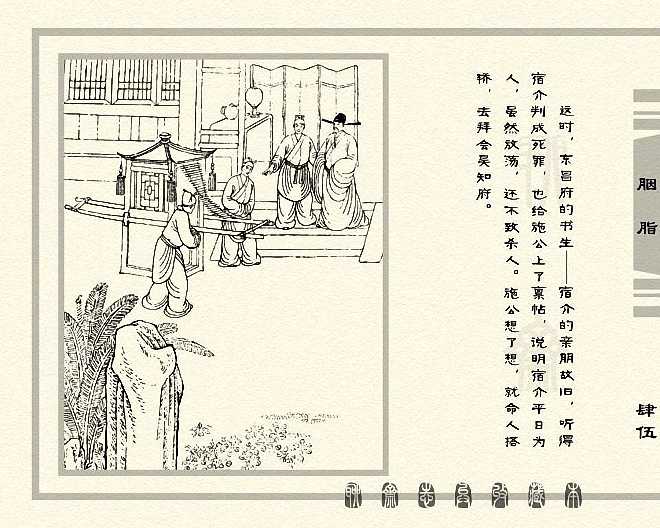 这时，东昌府的书生——宿介的亲朋故旧，听得
宿介判成死罪，也给施公上了禀帖，说明宿介平日为
人，虽然放荡，还不致杀人。施公想了想，就命人搭
轿，去拜会吴知府。
胭脂
肆伍